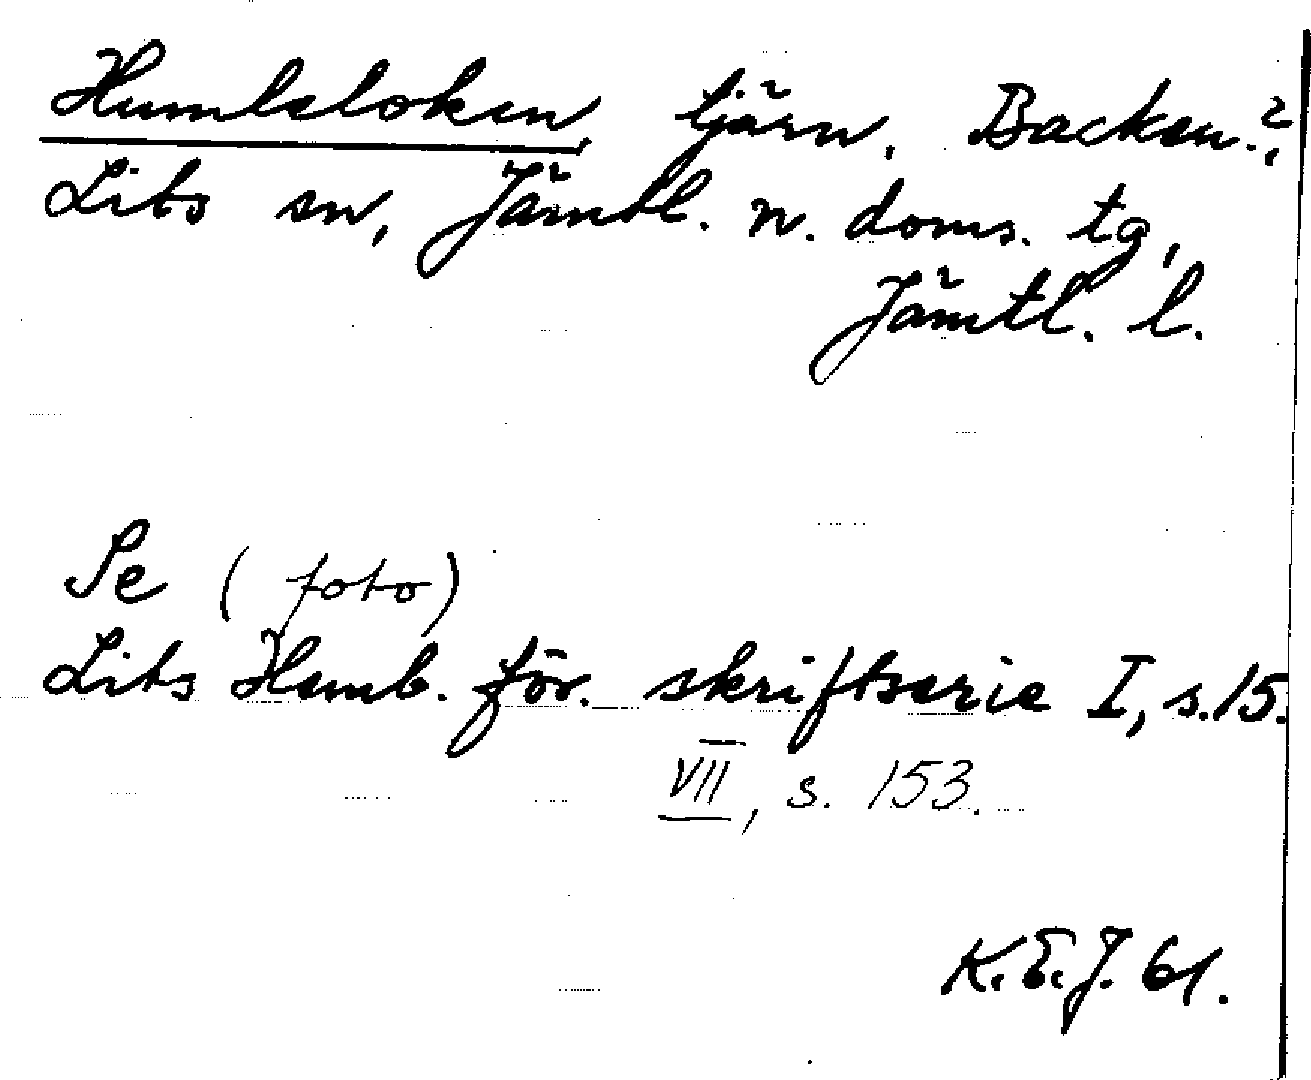 Humleloken, tjärn, Backen?,
Lits sn, Jämtl. n. doms. tg,
Jämtl. l.
Se (foto)
Lits Hemb. för. skriftserie I, s. 15.
VII, s. 153.
K.E.J. 61.